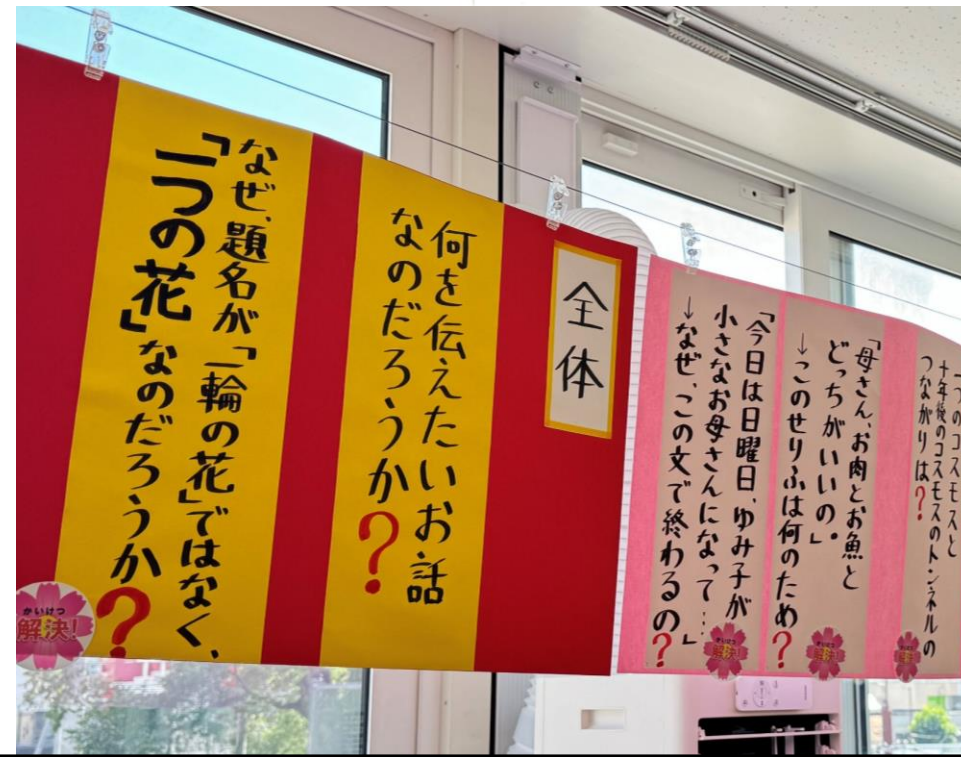 一つのコスモスと
十年後のコスモスのトンネルの
つながりは?
「母さん、お肉とお魚と
どっちがいいの。」
→このせりふは何のため?
「今日は日曜日、ゆみ子が
小さなお母さんになって…」
→なぜ、この文で終わるの?
全体
何を伝えたいお話
なのだろうか?
なぜ、題名が「一輪の花」ではなく、
「一つの花」なのだろうか?
かいけつ
解決!
かいけつ
解決!
かいけつ
解決!
かいけつ
解決!